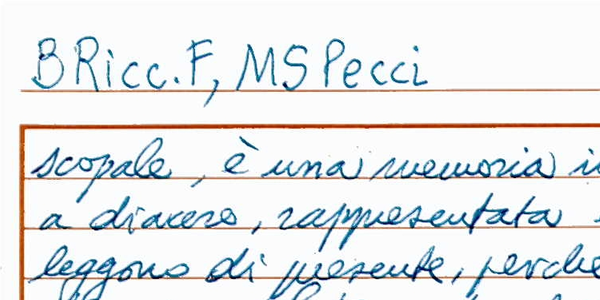 BRicc.F, MSPecci
scopale, è una memoria
a diacero, rappresentata
leggono di presente, perche